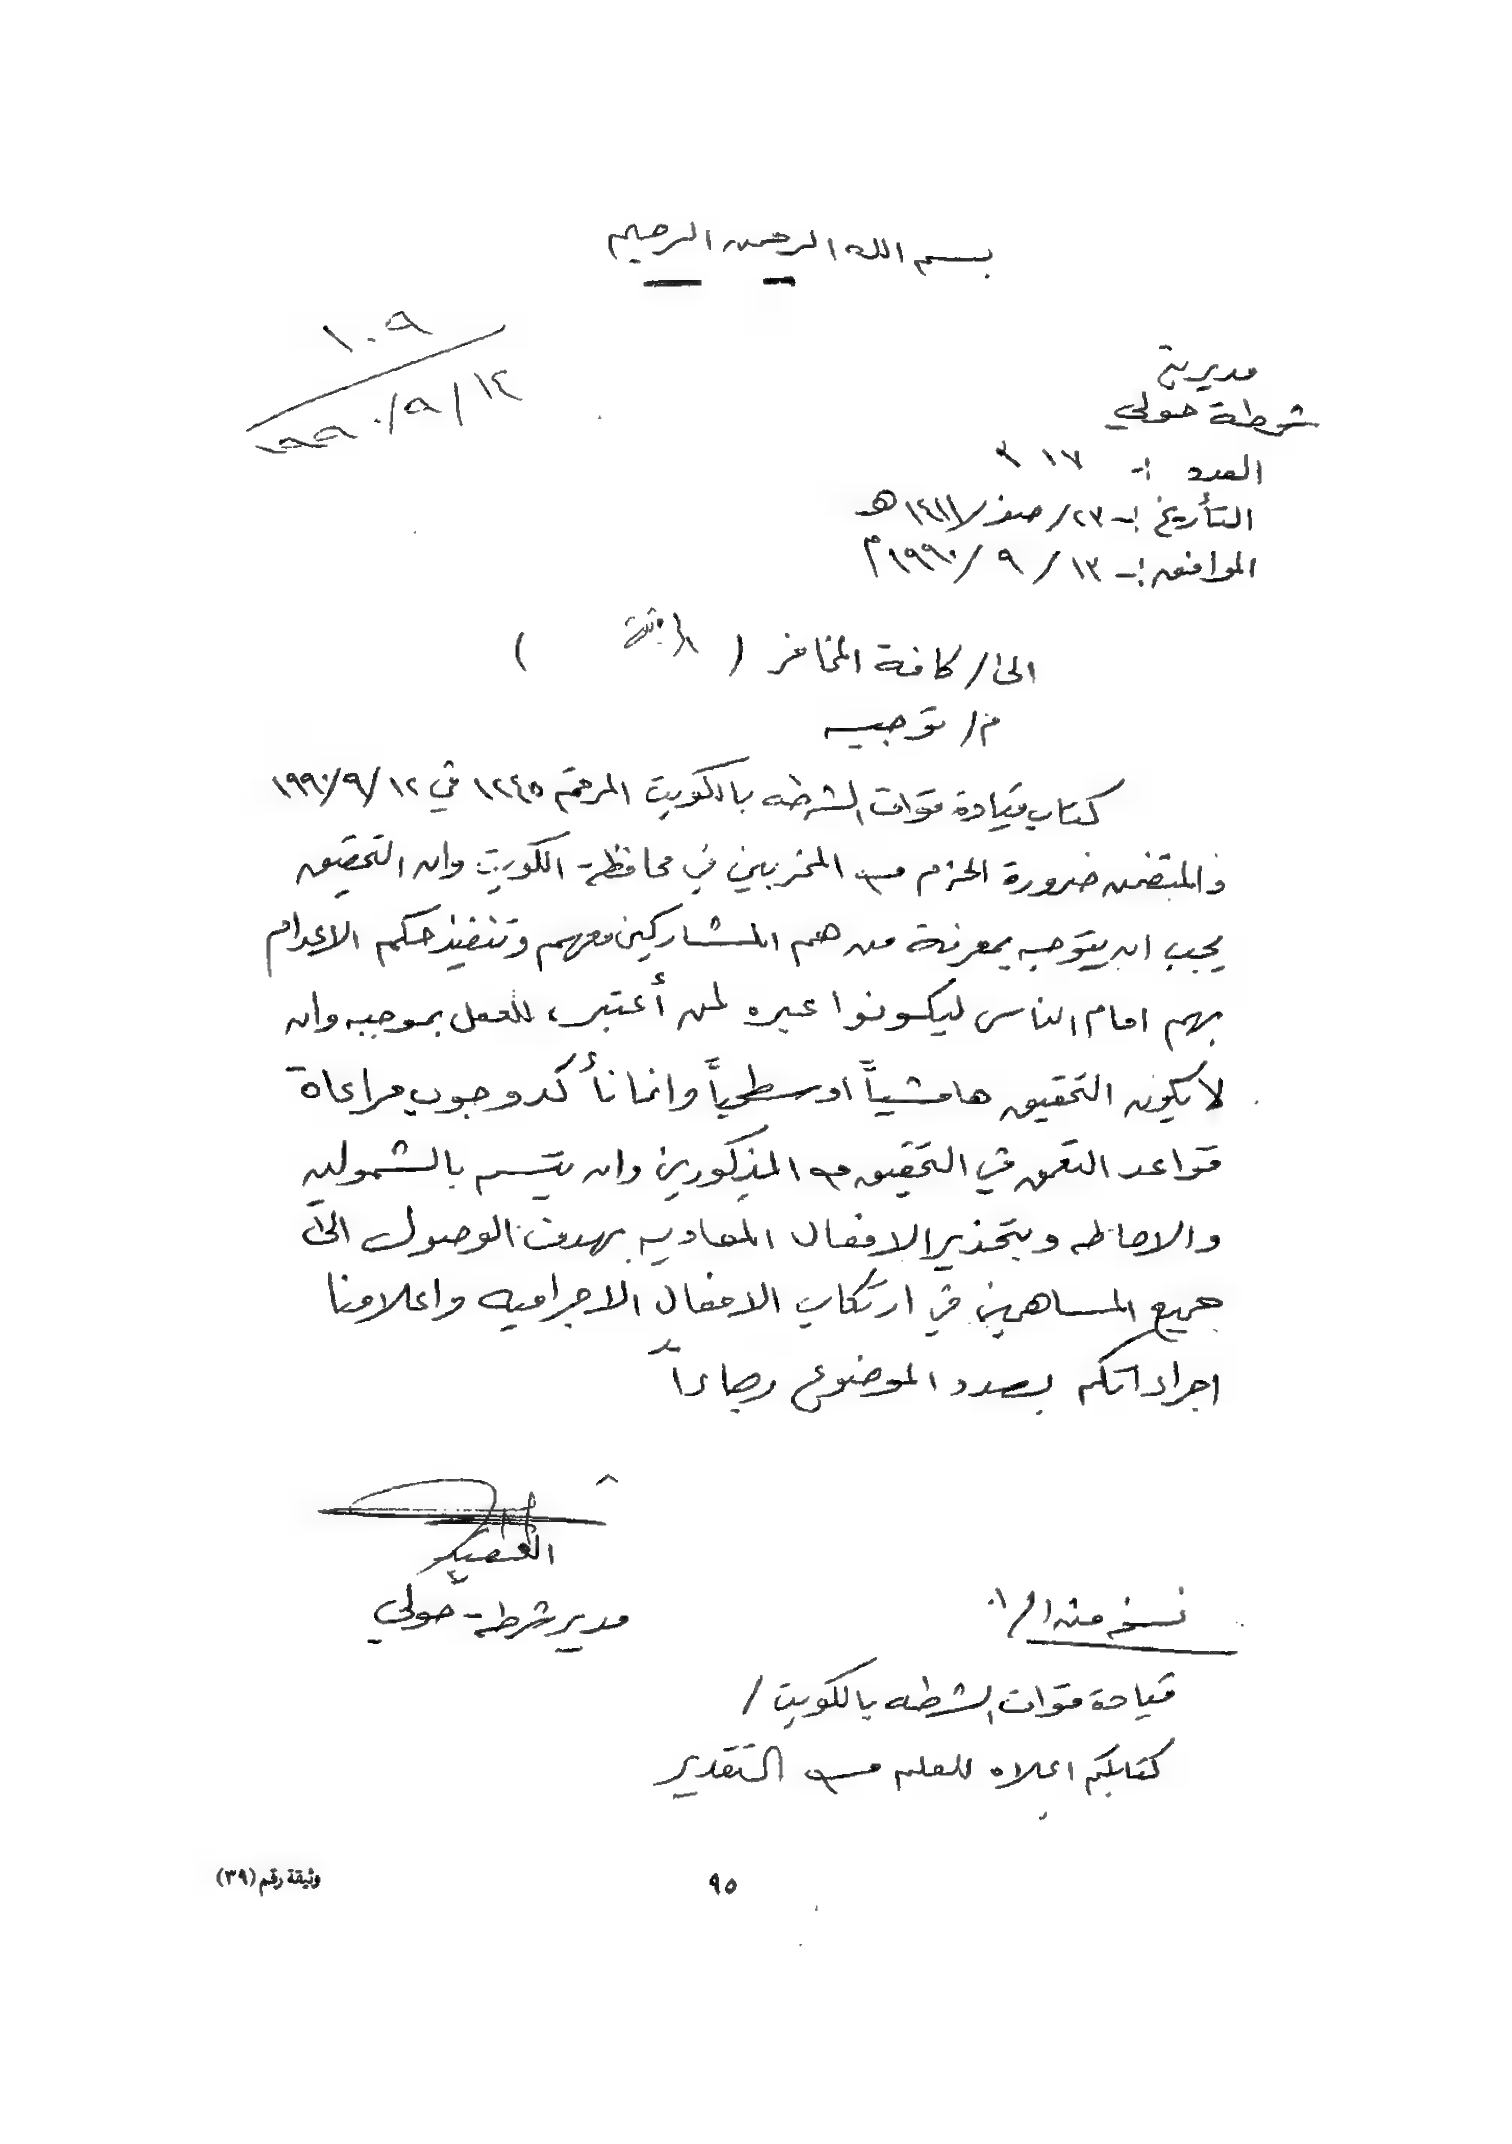 بسم الله الرحمن الرحيم
١٠٩
١٤/٩/١٩٩٠
مديرية
شرطة حولي
العدد :- ٣١٧
التأريخ :- ٢٣/صفر/١٤١١هـ
الموافق :- ١٣/٩/١٩٩٠م
الى/ كافة المخافر ( )
م/ توجيه
كتاب قيادة قوات الشرطه بالكويت المرقم ١٢٤٥ في ١٢/٩/١٩٩٠
والمتضمن ضرورة الحزم مع المخربين في محافظة الكويت وان التحقيق
يجب ان يتوجه بمعرفة من هم المشاركين معهم وتنفيذ حكم الاعدام
بهم امام الناس ليكونوا عبره لمن أعتبر، للعمل بموجبه وان
لا يكون التحقيق هامشياً او سطحياً وانما نأكد وجوب مراعاة
قواعد التعمق في التحقيق مع المذكورين وان يتسم بالشموليه
والاحاطه وبتحذير الافعال المعاديه بهدف الوصول الى
جميع المساهمين في ارتكاب الافعال الاجراميه واعلامنا
اجراءاتكم بصدد الموضوع رجاءاً
العميد
مدير شرطة حولي
نسخه منه الى/
قيادة قوات الشرطه بالكويت /
كتابكم اعلاه للعلم مع التقدير
وثيقة رقم (٣٩)
٩٥